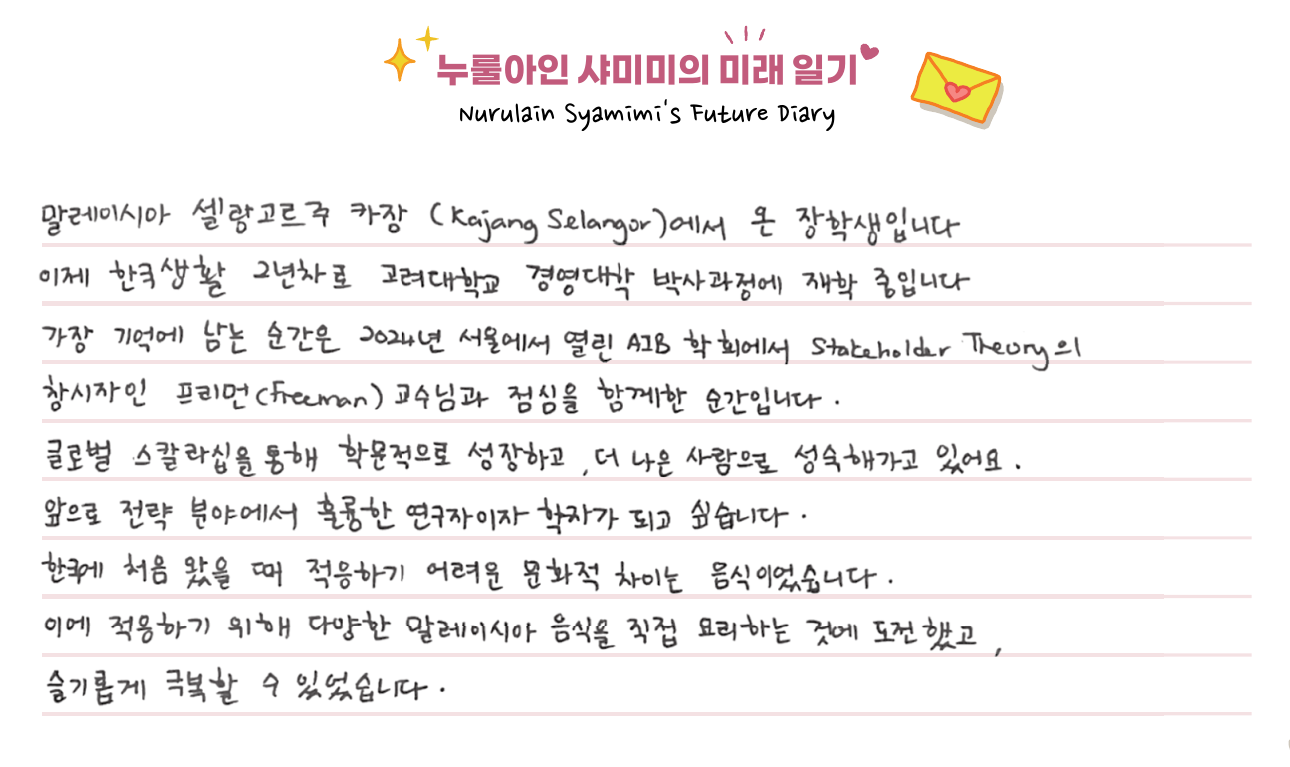 누룰아인 샤미미의 미래 일기
Nurulain Syamimi's Future Diary
말레이시아 셀랑고르주 카장 (Kajang Selangor)에서 온 장학생입니다
이제 한국생활 2년차로 고려대학교 경영대학 박사과정에 재학 중입니다
가장 기억에 남는 순간은 2024년 서울에서 열린 AIB 학회에서 Stakeholder Theory의
창시자인 프리먼(Freeman) 교수님과 점심을 함께한 순간입니다.
글로벌 스칼라십을 통해 학문적으로 성장하고, 더 나은 사람으로 성숙해가고 있어요.
앞으로 전략 분야에서 훌륭한 연구자이자 학자가 되고 싶습니다.
한국에 처음 왔을 때 적응하기 어려운 문화적 차이는 음식이었습니다.
이에 적응하기 위해 다양한 말레이시아 음식을 직접 요리하는 것에 도전했고,
슬기롭게 극복할 수 있었습니다.